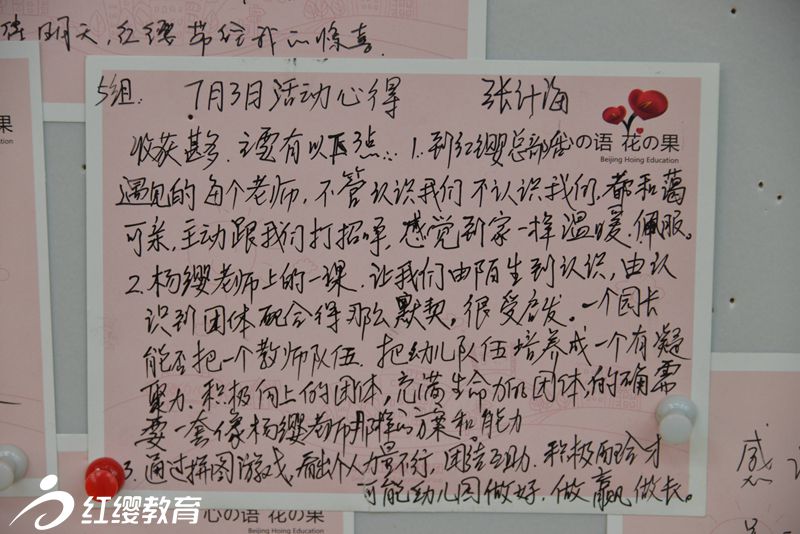 佳明天，红缨带给我的惊喜
5组． 7月3日活动心得 张计海
心の语 花の果
Beijing Hoing Education
收获甚多．主要有以下3点：1．到红缨总部后
遇见的每个老师，不管认识我们不认识我们，都和蔼
可亲，主动跟我们打招呼，感觉到家一样温暖．佩服。
2．杨缨老师上的一课．让我们由陌生到认识，由认
识到团体配合得那么默契，很受启发。一个园长
能否把一个教师队伍．把幼儿队伍培养成一个有凝
聚力．积极向上的团体，充满生命力的团体，的确需
要一套像杨缨老师那样的方案和能力
3．通过拼图游戏．看出个人力量不行．团结互助．积极配合才
可能幼儿园做好．做赢做长。
の果
感
红缨教育
心の语 花の果
Beijing Hoing Education